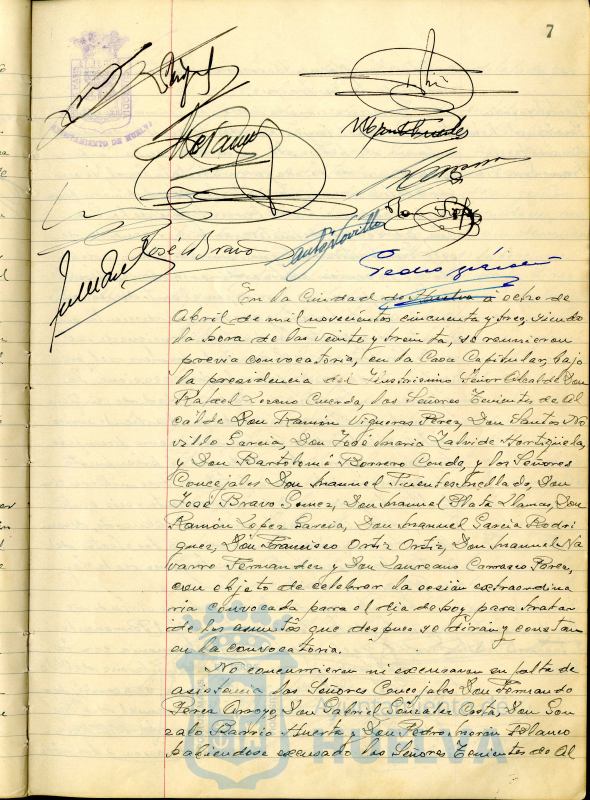 7
AYUNTAMIENTO DE HUELVA
José Bravo
Pedro
En la Ciudad de Huelva a ocho de
Abril de mil novecientos cincuenta y tres, siendo
la hora de las veinte y treinta, se reunieron
previa convocatoria, en la Casa Capitular, bajo
la presidencia del Ilustrísimo Señor Alcalde Don
Rafael Lozano Cuerda, los Señores Tenientes de Al
calde Don Ramón Vigueras Pérez, Don Santos No
villo García, Don José María Zalvide Hortigüela,
y Don Bartolomé Borrero Conde, y los Señores
Concejales Don Manuel Fuentes Mellado, Don
José Bravo Gómez, Don Manuel Plata Llamas, Don
Ramón López García, Don Manuel García Rodrí
guez, Don Francisco Ortiz Ortiz, Don Manuel Na
varro Fernández y Don Laureano Carrasco Pérez,
con objeto de celebrar la sesión extraordina
ria convocada para el día de hoy para tratar
de los asuntos que después se dirán y constan
en la convocatoria.
No concurrieron ni excusaron su falta de
asistencia los Señores Concejales Don Fernando
Perea Arroyo, Don Gabriel González Costa, Don Gon
zalo Barrio Huerta y Don Pedro Morón Blanco
habiéndose excusado los Señores Tenientes de Al
Ayuntamiento de
HUELVA